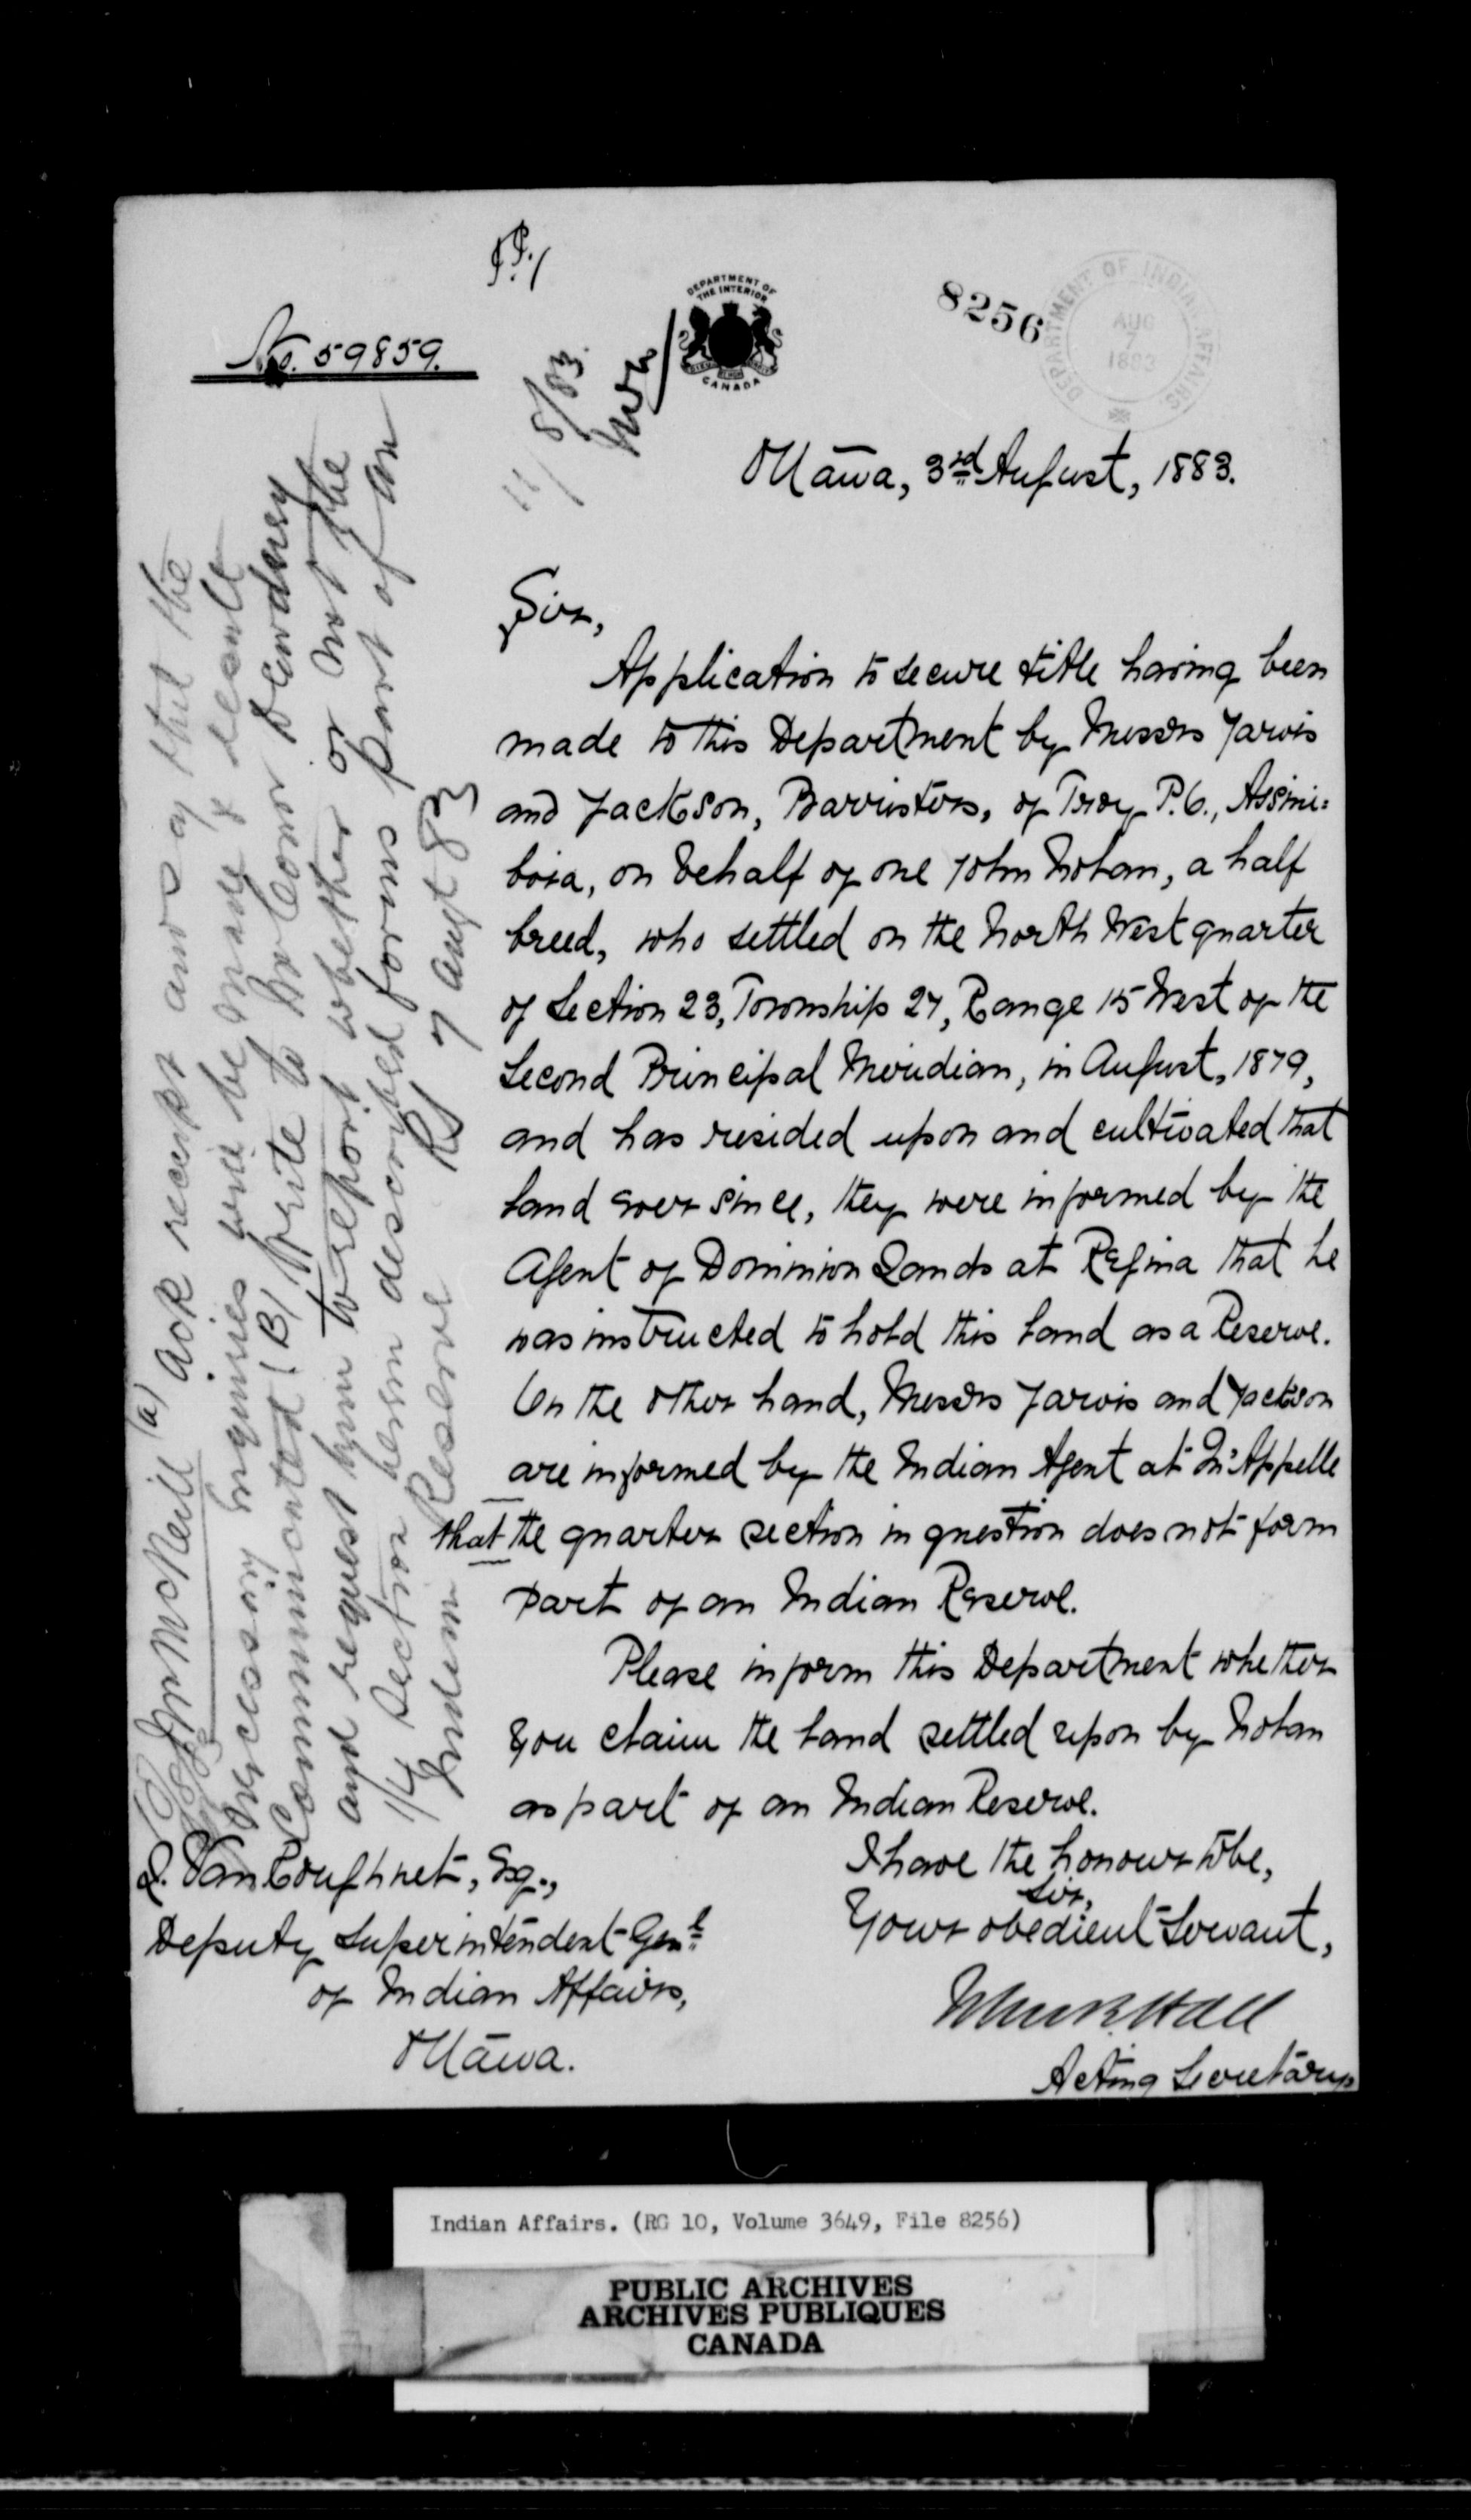 No. 59859.
DEPARTMENT OF
THE INTERIOR
CANADA
8256
DEPARTMENT OF INDIAN AFFAIRS
AUG
7
1883
11/8/83.
Ottawa, 3rd August, 1883.
Sir,
Application to secure title having been
made to this Department by Messrs Jarvis
and Jackson, Barristers, of Troy P.O., Assini=
boia, on behalf of one John Nolan, a half
breed, who settled on the North West quarter
of Section 23, Township 27, Range 15 West of the
Second Principal Meridian, in August, 1879,
and has resided upon and cultivated that
land ever since, they were informed by the
Agent of Dominion Lands at Regina that he
was instructed to hold this land as a Reserve.
On the other hand, Messrs Jarvis and Jackson
are informed by the Indian Agent at Qu'Appelle
that the quarter section in question does not form
part of an Indian Reserve.
Please inform this Department whether
you claim the land settled upon by Nolan
as part of an Indian Reserve.
I have the honour to be,
Sir,
Your obedient Servant,
Hall
Acting Secretary
L. VanKoughnet, Esq.,
Deputy Superintendent Genl
of Indian Affairs,
Ottawa.
Mr McNeill (a) Ack receipt and say that the
necessary inquiries will be made & result
communicated (B) write to Mr Comr Dewdney
and request him to report whether or not the
1/4 Section herein described forms part of an
Indian Reserve
7 Augt 83
Indian Affairs. (RG 10, Volume 3649, File 8256)
PUBLIC ARCHIVES
ARCHIVES PUBLIQUES
CANADA